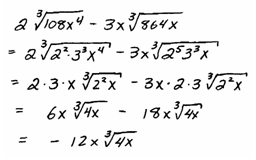 2 ∛108x⁴ - 3x ∛864x
= 2 ∛2²·3³x⁴ - 3x ∛2⁵3³x
= 2·3·x ∛2²x - 3x·2·3 ∛2²x
= 6x ∛4x - 18x ∛4x
= -12x ∛4x